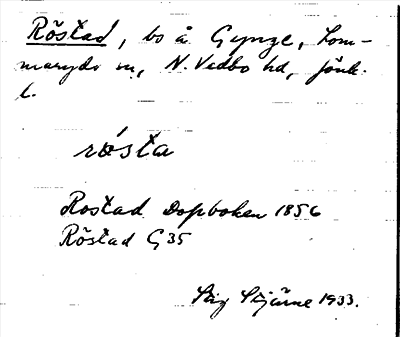 Röstad, bo å Gynge, Lom-
maryds sn, N. Vedbo hd, Jönk.
l.
rö́sta
Rostad Dopboken 1856
Röstad G 35
Stig Stjärne 1933.